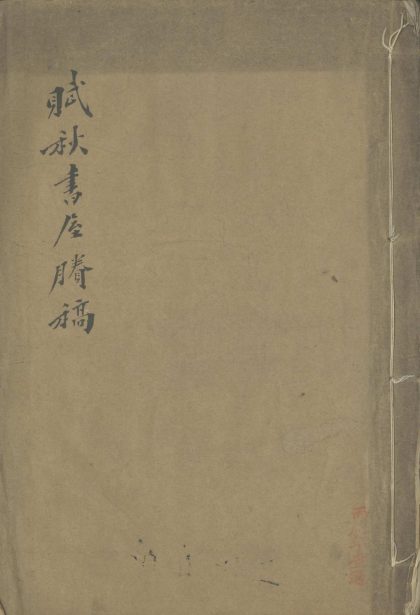 賦秋書屋賸稿